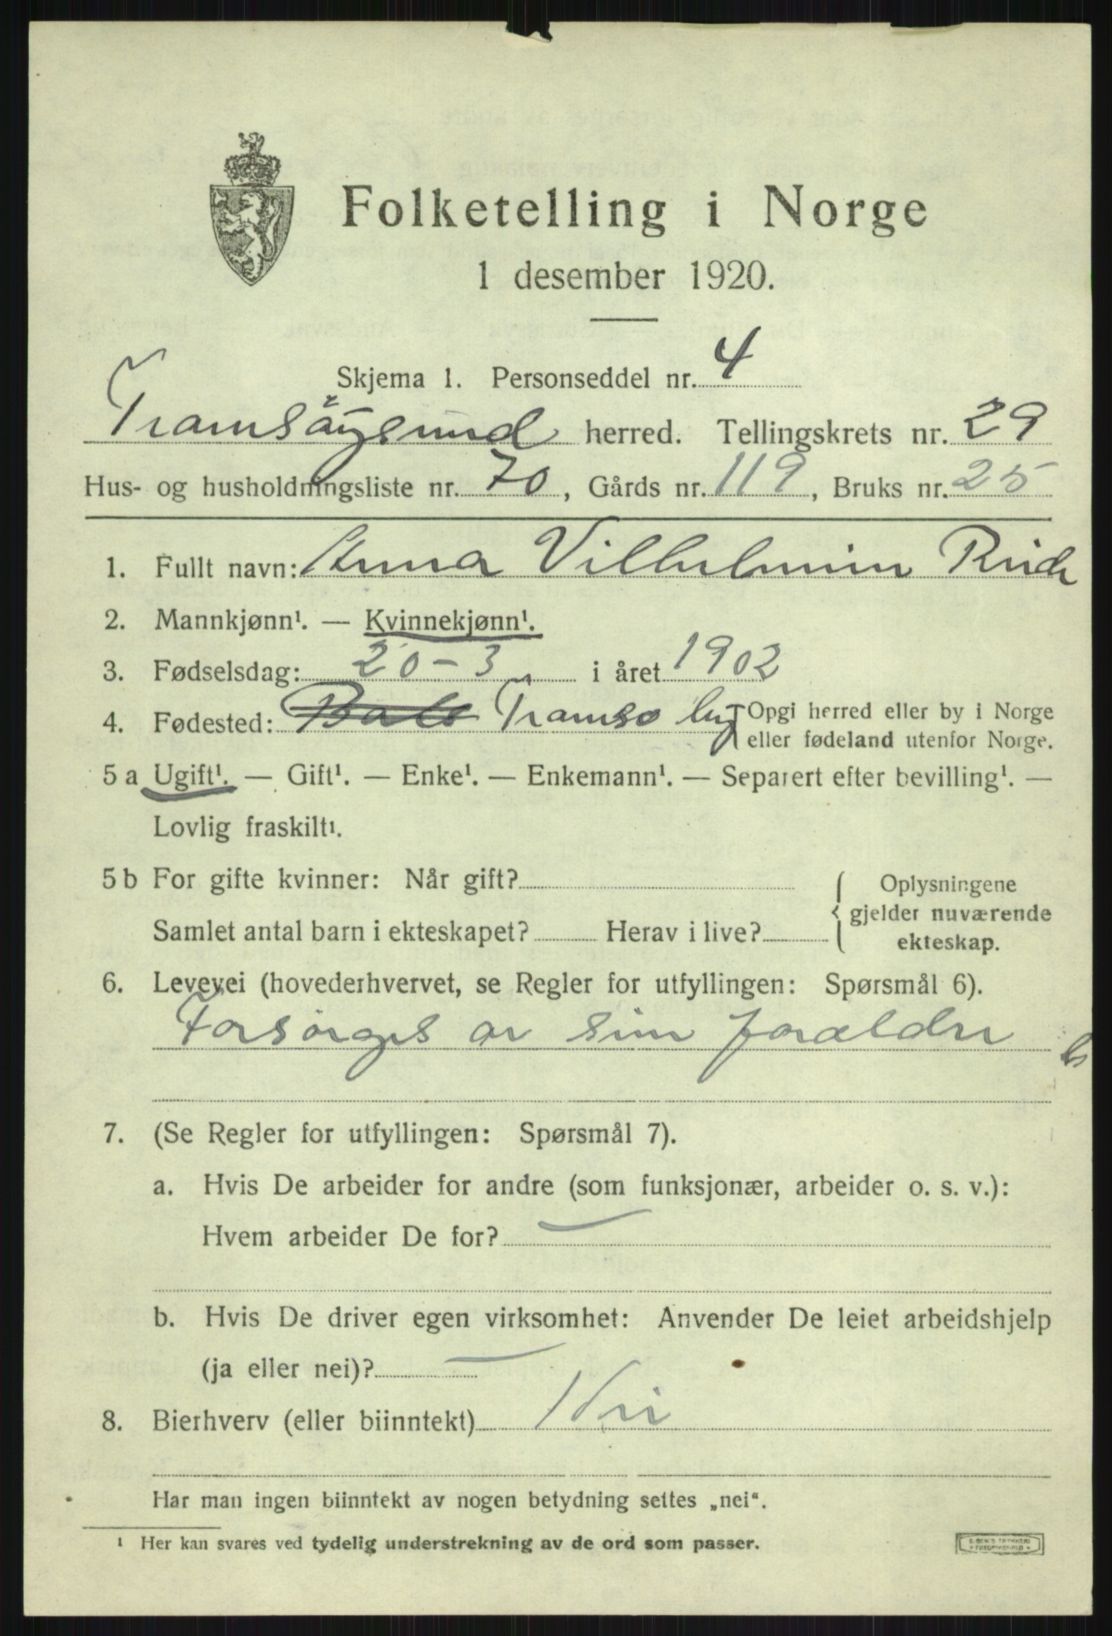 Folketelling i Norge
1 desember 1920.
Skjema 1. Personseddel nr. 4
Tromsøysund herred. Tellingskrets nr. 29
Hus- og husholdningsliste nr. 70, Gårds nr. 119, Bruks nr. 25
1. Fullt navn: Anna Vilhelmine
2. Mannkjønn¹. — Kvinnekjønn¹.
3. Fødselsdag: 20-3 i året 1902
4. Fødested: Tromsø by Opgi herred eller by i Norge
eller fødeland utenfor Norge.
5 a Ugift¹. — Gift¹. — Enke¹. — Enkemann¹. — Separert efter bevilling¹. —
Lovlig fraskilt¹.
5 b For gifte kvinner: Når gift?
Samlet antal barn i ekteskapet? Herav i live?
Oplysningene
gjelder nuværende
ekteskap.
6. Levevei (hovederhvervet, se Regler for utfyllingen: Spørsmål 6).
Forsørges av sine forældre
7. (Se Regler for utfyllingen: Spørsmål 7).
a. Hvis De arbeider for andre (som funksjonær, arbeider o. s. v.):
Hvem arbeider De for? —
b. Hvis De driver egen virksomhet: Anvender De leiet arbeidshjelp
(ja eller nei)? —
8. Bierhverv (eller biinntekt) Nei
Har man ingen biinntekt av nogen betydning settes „nei“.
¹ Her kan svares ved tydelig understrekning av de ord som passer.